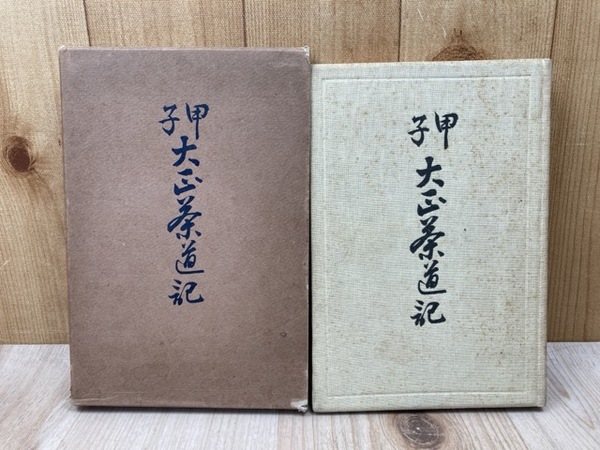 甲子
大正茶道記
甲子
大正茶道記